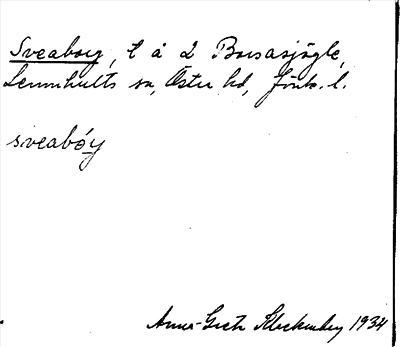 Sveaborg, l å 2 Borsasjögle,
Lemnhults sn, Östra hd, Jönk. l.
sveabóy
Anna-Greta 1934